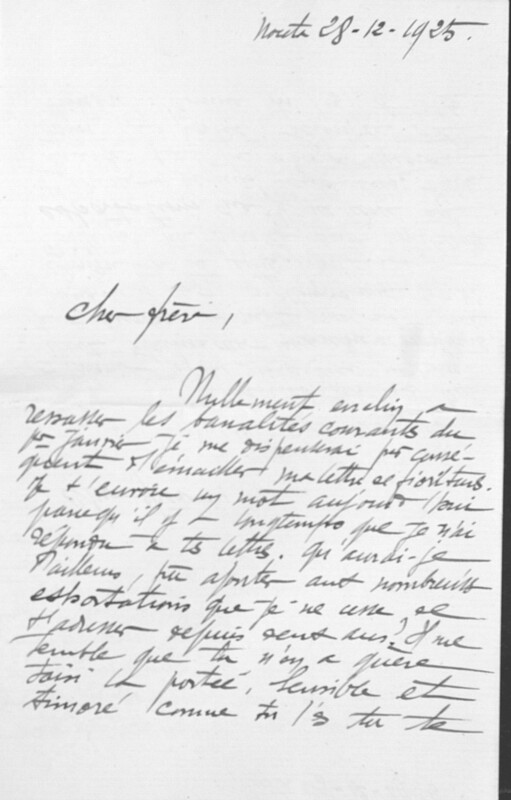 28-12-1925.
Cher frère,
Nullement enclin à
ressasser les banalités courants du
1er Janvier je me dispenserai par consé-
quent d'émailler ma lettre de fioritures.
Je t'envoie un mot aujourd'hui
parcequ'il y a longtemps que je n'ai
répondu à ts lettrs. Qu'aurai-je
d'ailleurs, pu ajouter aux nombreuses
exhortations que je ne cesse, de
t'adresser depuis deux ans? Il me
semble que tu n'en a guère
saisi la portée. Sensible et
timoré comme tu l'es tu te